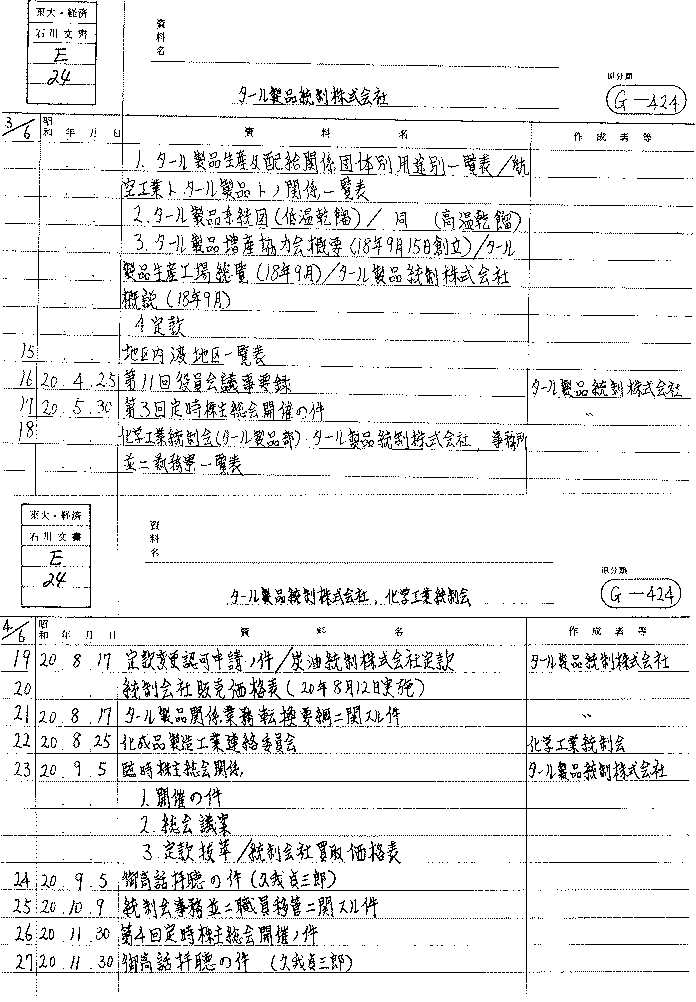 東大・経済
石川文書
E
24
資料名
タール製品統制株式会社
原分類
G-424
3/6 昭和 年 月 日 資 料 名 作成者等
1. タール製品生産及配給関係団体別用途別一覧表/航
空工業トタール製品トノ関係一覧表
2. タール製品系統図(低温乾餾)/ 同 (高温乾餾)
3. タール製品増産協力会概要(18年9月15日創立)/タール
製品生産工場総覧(18年9月)/タール製品統制株式会社
概説(18年9月)
4 定款
15 地区内渡地区一覧表
16 20.4.25 第11回役員会議事要録 タール製品統制株式会社
17 20.5.30 第3回定時株主総会開催の件 〃
18 化学工業統制会(タール製品部)・タール製品統制株式会社, 事務所
並ニ執務票一覧表
東大・経済
石川文書
E
24
資料名
タール製品統制株式会社, 化学工業統制会
原分類
G-424
4/6 昭和 年 月 日 資 料 名 作成者等
19 20.8.17 定款変更認可申請ノ件/炭油統制株式会社定款 タール製品統制株式会社
20 統制会社販売価格表(20年8月12日実施)
21 20.8.17 タール製品関係業務転換要綱ニ関スル件 〃
22 20.8.25 化成品製造工業連絡委員会 化学工業統制会
23 20.9.5 臨時株主総会関係, タール製品統制株式会社
1. 開催の件
2. 総会議案
3. 定款抜萃/統制会社買取価格表
24 20.9.5 御高話拝聴の件(久我貞三郎)
25 20.10.9 統制会事務並ニ職員移管ニ関スル件
26 20.11.30 第4回定時株主総会開催ノ件
27 20.11.30 御高話拝聴の件 (久我貞三郎)